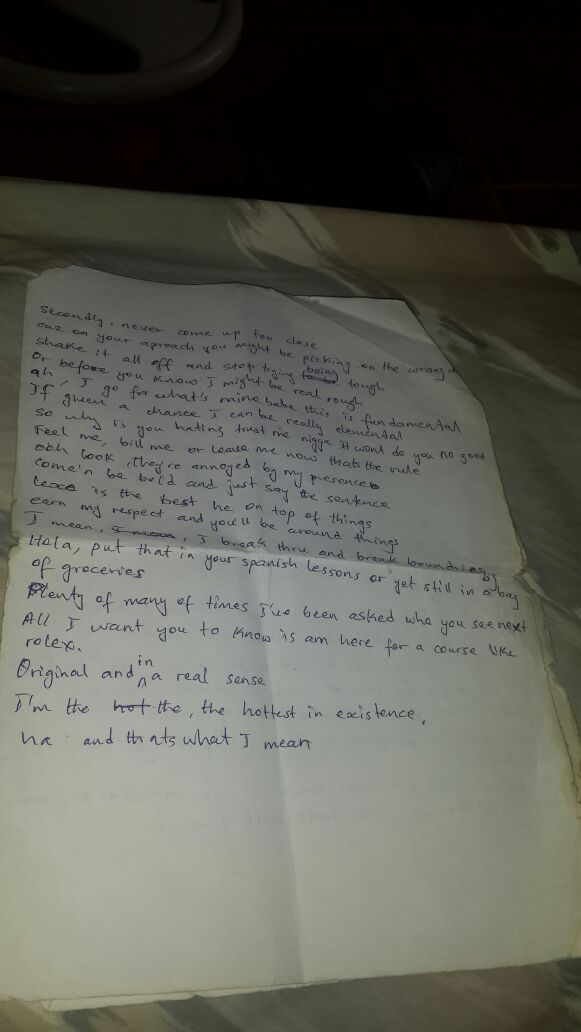 Secondly, never come up too close
cuz on your aproach you might be picking on the wrong
shake it all off and stop trying being tough
Or before you know I might be real rough
ah, I go for what's mine babe this is fundamental
If given a chance I can be really elemental
So why is you hating trust me nigga It wont do you no good
Feel me, bill me or leave me now thats the rule
ooh look, they're annoyed by my presence
come'n be bold and just say the sentence
is the best he on top of things
earn my respect and you'll be around things
I mean, I mean, I break thru and break boundries by
Hola, put that in your spanish lessons or yet still in a bag
of groceries
Plenty of many of times I've been asked who you see next
All I want you to know is am here for a course like
rolex.
Original and in a real sense
I'm the hot the, the hottest in existence,
ha and thats what I mean